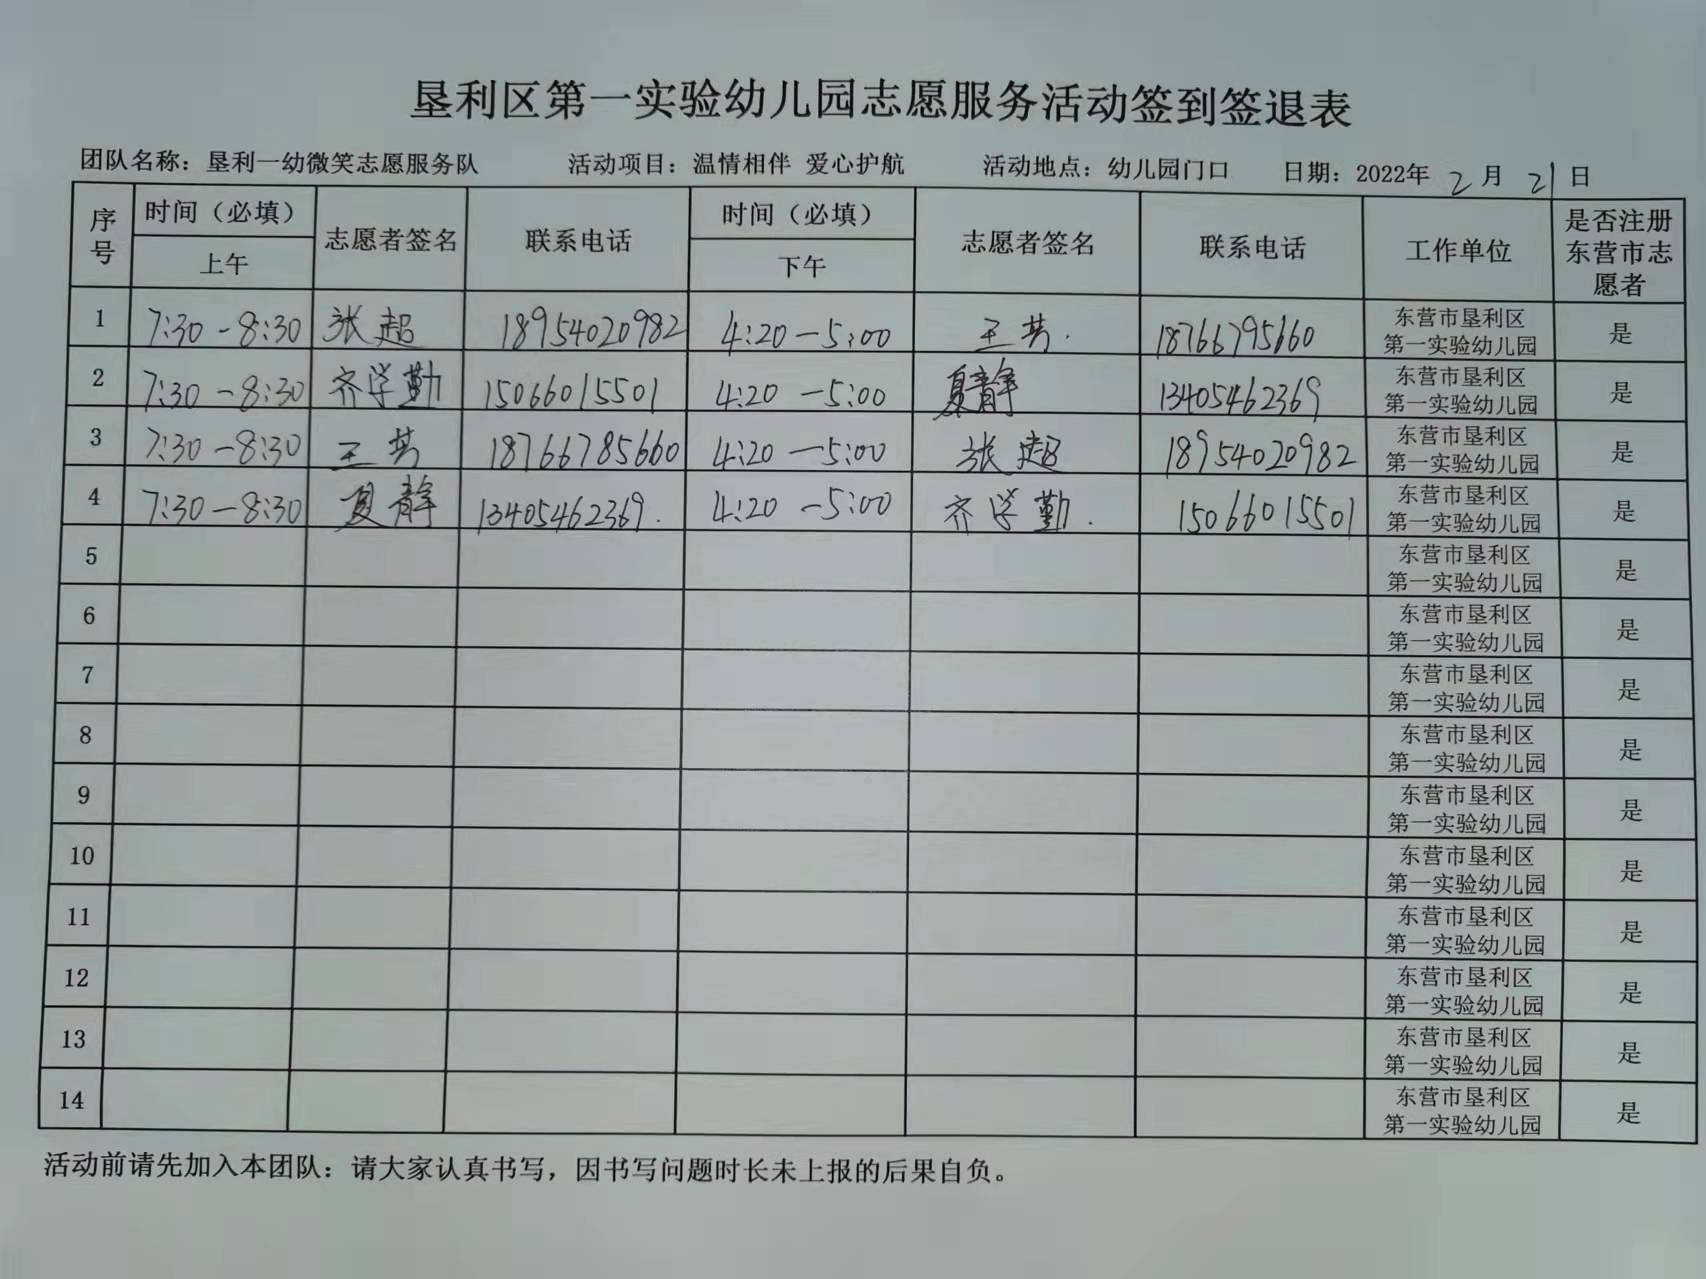 垦利区第一实验幼儿园志愿服务活动签到签退表
团队名称：垦利一幼微笑志愿服务队 活动项目：温情相伴 爱心护航 活动地点：幼儿园门口 日期：2022年 2 月 21 日
序号 时间（必填） 上午 志愿者签名 联系电话 时间（必填） 下午 志愿者签名 联系电话 工作单位 是否注册东营市志愿者
1 7:30-8:30 张超 18954020982 4:20-5:00 王芳. 18766795660 东营市垦利区第一实验幼儿园 是
2 7:30-8:30 齐学勤 15066015501 4:20-5:00 夏静 13405462369 东营市垦利区第一实验幼儿园 是
3 7:30-8:30 王芳 18766785660 4:20-5:00 张超 18954020982 东营市垦利区第一实验幼儿园 是
4 7:30-8:30 夏静 13405462369. 4:20-5:00 齐学勤. 15066015501 东营市垦利区第一实验幼儿园 是
5 东营市垦利区第一实验幼儿园 是
6 东营市垦利区第一实验幼儿园 是
7 东营市垦利区第一实验幼儿园 是
8 东营市垦利区第一实验幼儿园 是
9 东营市垦利区第一实验幼儿园 是
10 东营市垦利区第一实验幼儿园 是
11 东营市垦利区第一实验幼儿园 是
12 东营市垦利区第一实验幼儿园 是
13 东营市垦利区第一实验幼儿园 是
14 东营市垦利区第一实验幼儿园 是
活动前请先加入本团队：请大家认真书写，因书写问题时长未上报的后果自负。